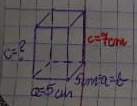 c=?
c=7cm
a=5cm
5cm=a=b